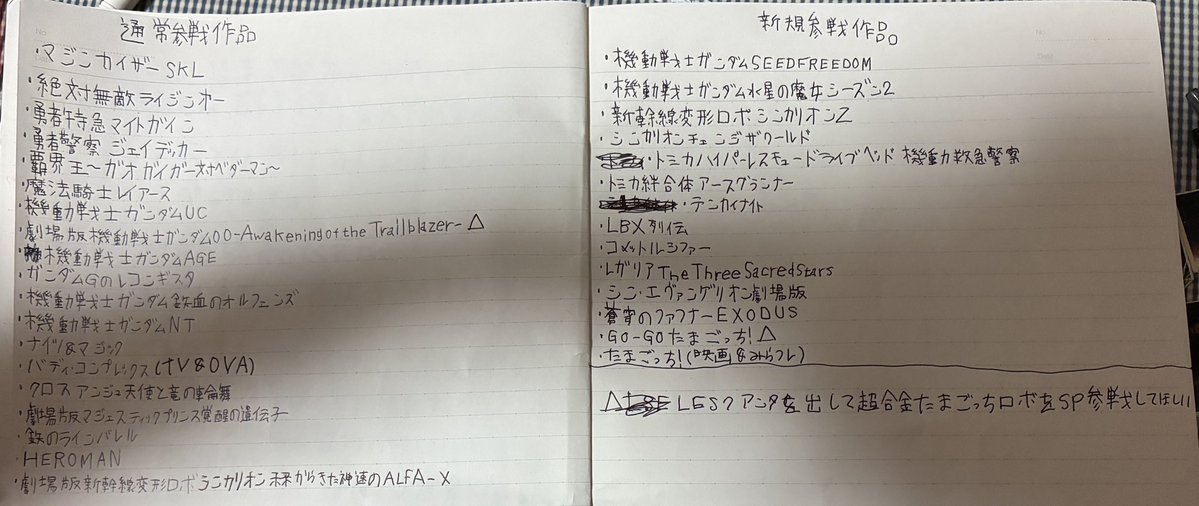 通常参戦作品
・マジンカイザーSKL
・絶対無敵ライジンオー
・勇者特急マイトガイン
・勇者警察 ジェイデッカー
・覇界王～ガオガイガー対ベターマン～
・魔法騎士レイアース
・機動戦士ガンダムUC
・劇場版機動戦士ガンダム00-Awakening of the Trallblazer-△
機動戦士ガンダムAGE
・ガンダムGのレコンギスタ
・機動戦士ガンダム鉄血のオルフェンズ
・機動戦士ガンダムNT
・ナイツ&マジック
・バディ・コンプレックス(TV&OVA)
・クロスアンジュ天使と竜の輪舞
・劇場版マジェスティックプリンス覚醒の遺伝子
・鉄のラインバレル
・HEROMAN
・劇場版新幹線変形ロボシンカリオン 未来からきた神速のALFA-X
新規参戦作品
・機動戦士ガンダムSEEDFREEDOM
・機動戦士ガンダム水星の魔女シーズン2
・新幹線変形ロボシンカリオンZ
・シンカリオンチェンジザワールド
・トミカハイパーレスキュードライブヘッド 機動救急警察
・トミカ絆合体アースグランナー
・テンカイナイト
・LBX烈伝
・コメットルシファー
・レガリアThe Three Sacred Stars
・シン・エヴァンゲリオン劇場版
・蒼穹のファフナーEXODUS
・GO-GOたまごっち!△
・たまごっち!(映画&みらフレ)
△ LESクアンタを出して超合金たまごっちロボをSP参戦してほしい